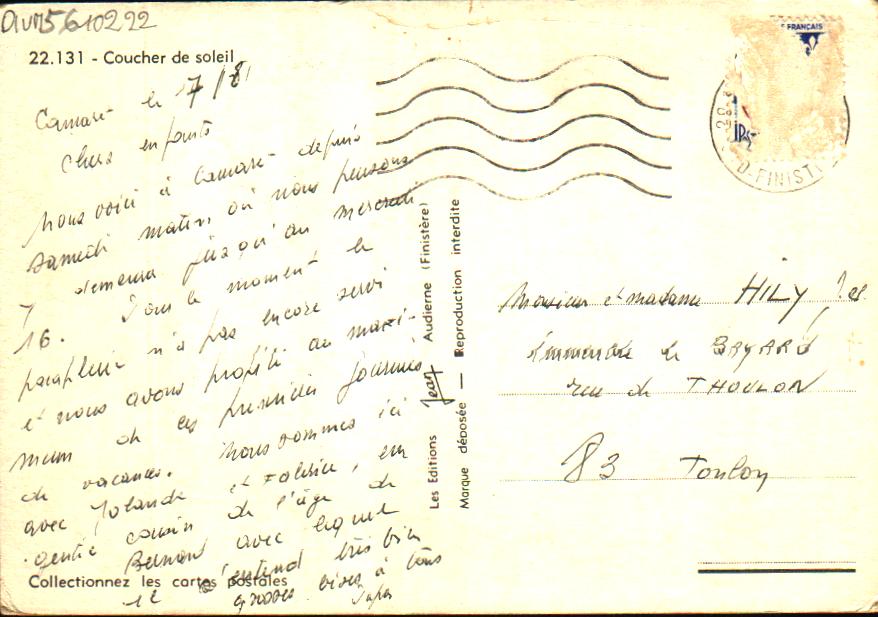 22.131 - Coucher de soleil
Camaret le 17/8/
Chers enfants
Nous voici à Camaret depuis
samedi matin où nous pensons
demeurer jusqu'au mercredi
16. Pour le moment le
parapluie n'a pas encore servi
et nous avons profité au maxi-
mum de ces premières journées
de vacances. Nous sommes ici
avec Yolande et Fabrice, un
gentil cousin de l'âge de
Bernard avec lequel
il s'entend très bien
grosses bises à tous
Collectionnez les cartes postales
Les Editions Jean Audierne (Finistère)
Marque déposée — Reproduction interdite
FRANÇAIS
D-FINIST
Monsieur et madame HILY
Immeuble le BAYARD
rue de THOULON
83 Toulon